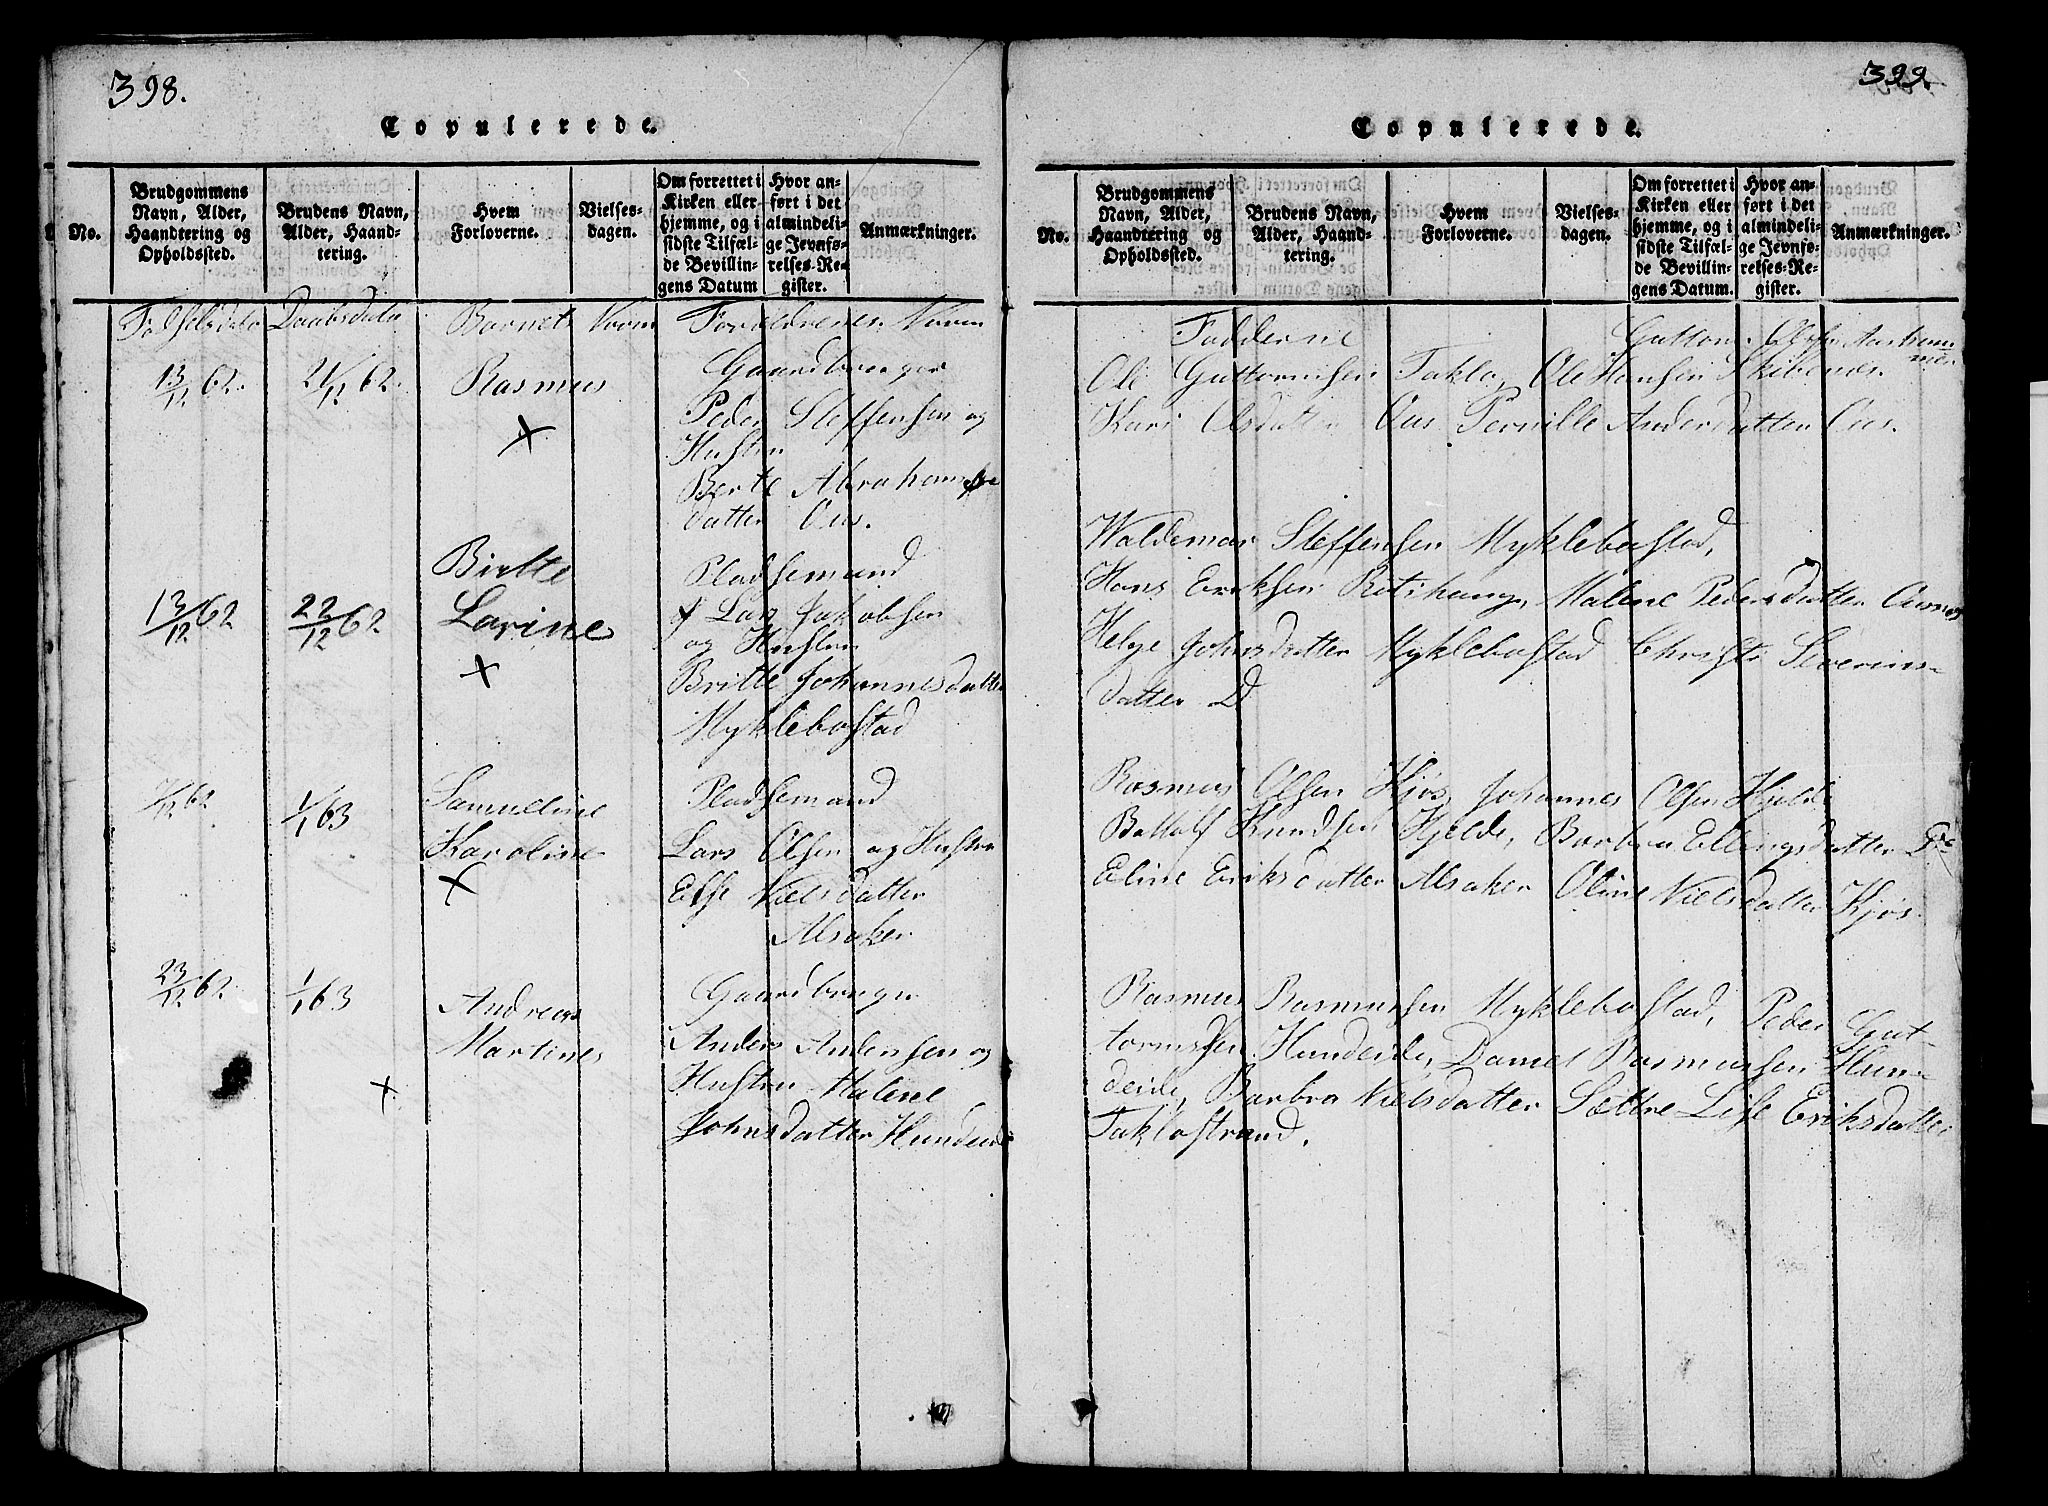 398.
Copulerede.
No.
Brudgommens Navn, Alder, Haandtering og Opholdssted.
Brudens Navn, Alder, Haandtering.
Hvem Forloverne.
Vielsesdagen.
Om forrettet i Kirken eller hjemme, og i sidste Tilfælde Bevillingens Datum
Hvor anført i det almindelige Jevnførelses-Register.
Anmærkninger.
Fødselsdato Daabsdato Barnets Navn Forældrenes Navn
13/12 62. 21/12 62. Rasmus Gaardbruger
Peder Steffensen og
Hustru
Berte Abrahams
datter Aus.
Birtte Pladsemand
13/12 62 22/12 62 Larine Lars Jakobsen
og Hustru
Britte Johannesdatter
Myklebostad
Samueline Pladsemand
7/12 62 1/1 63
Karoline Lars Olsen og Hustru
Else Nielsdatter
Alsaker
23/12 62 1/1 63 Andreas Gaardbruger
Martines Anders Andersen og
Hustru Malene
Johnsdatter Hundeide
399.
Copulerede.
No.
Brudgommens Navn, Alder, Haandtering og Opholdssted.
Brudens Navn, Alder, Haandtering.
Hvem Forloverne.
Vielsesdagen.
Om forrettet i Kirken eller hjemme, og i sidste Tilfælde Bevillingens Datum.
Hvor anført i det almindelige Jevnførelses-Register.
Anmærkninger.
Fadderne
Guttorm
Ole Guttormsen Taklo, Ole Hansen Skibenes
Kari Olsdatter Aus Pernille Andersdatter Aus.
Waldemar Steffensen Myklebostad,
Hans Eriksen Malene Pedersdatter
Helge Johnsdatter Myklebostad Christi Severins-
datter D
Rasmus Olsen Kjøs, Johannes Olsen Hjelde
Knudsen Hjelde, Barbra Ellingsdatter
Eline Eriksdatter Alsaker Oline Nielsdatter Kjøs.
Rasmus Rasmussen Myklebostad, Peder Gut-
tormsen Hundeide, Daniel Rasmussen Hun-
deide, Barbra Nielsdatter Sættre Lise Eriksdatter
Taklostrand.